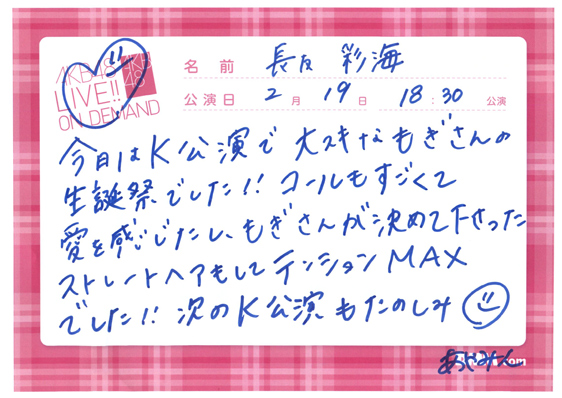 AKB48
LIVE!!
ON DEMAND
AKB
48
名前 長友 彩海
公演日 2月 19日 18:30 公演
今日はK公演で大スキなもぎさんの
生誕祭でした!! コールもすごくて
愛を感じたし、もぎさんが決めて下さった
ストレートヘアもしてテンションMAX
でした!! 次のK公演もたのしみ
あやみん
.com